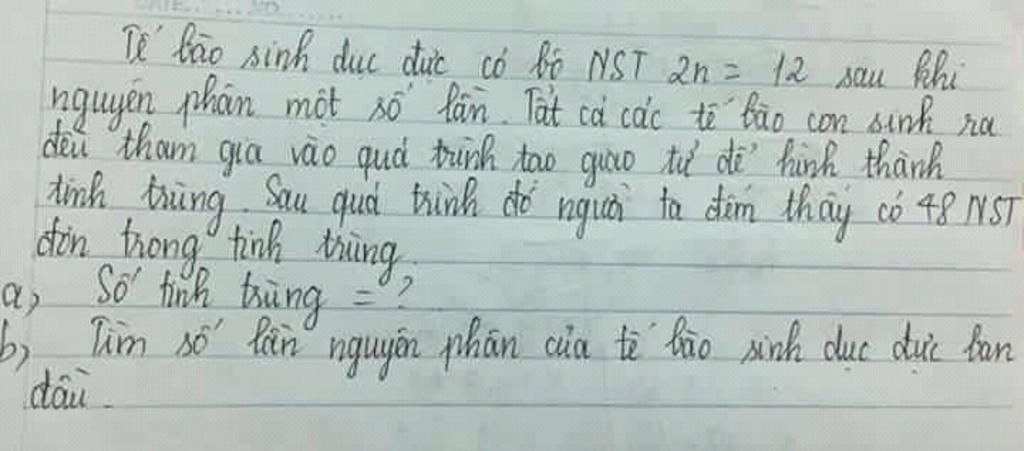 Tế bào sinh dục đực có bộ NST 2n = 12 sau khi
nguyên phân một số lần. Tất cả các tế bào con sinh ra
đều tham gia vào quá trình tạo giao tử để hình thành
tinh trùng. Sau quá trình đó người ta đếm thấy có 48 NST
đơn trong tinh trùng.
a, Số tinh trùng = ?
b, Tìm số lần nguyên phân của tế bào sinh dục đực ban
đầu.